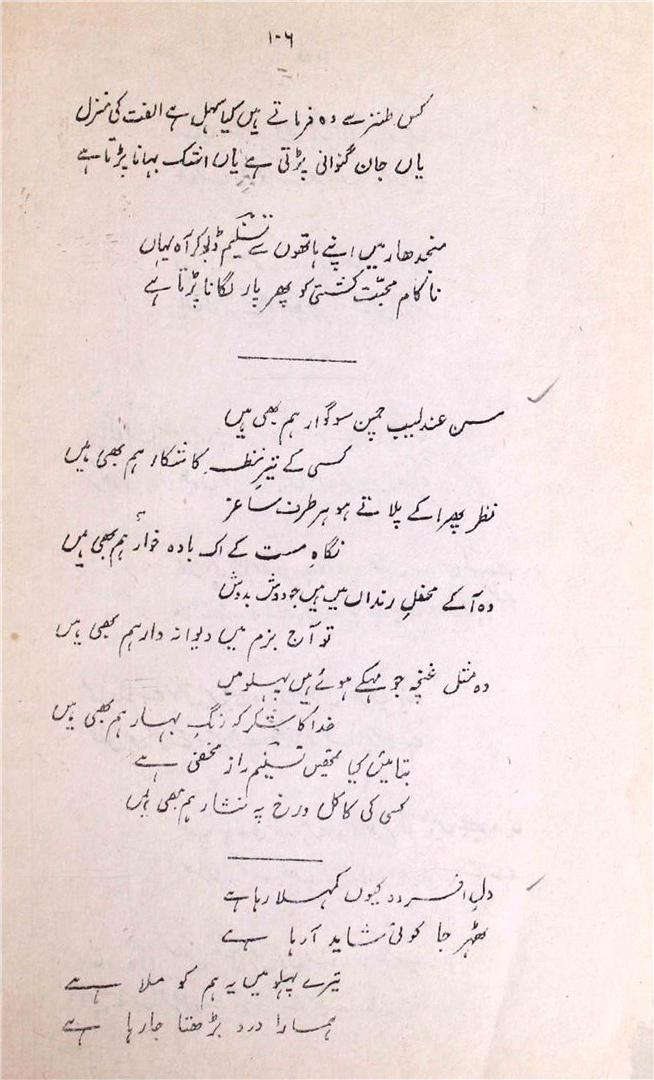 ۱۰۶
کس طنز سے وہ فرماتے ہیں کیا سہل ہے الفت کی منزل
یاں جان گنوانی پڑتی ہے یاں اشک بہانا پڑتا ہے
منجدھار میں اپنے ہاتھوں سے تسنیمؔ ڈبو کر آہ یہاں
ناکام محبّت کشتی کو پھر پار لگانا پڑتا ہے
سن عندلیب چمن سوگوار ہم بھی ہیں
کسی کے تیرِ نظر کا شکار ہم بھی ہیں
نظر پھرا کے پلاتے ہو ہر طرف ساغر
نگاہِ مست کے اک بادہ خوار ہم بھی ہیں
وہ آکے محفلِ رنداں میں ہیں جو دوش بدوش
تو آج بزم میں دیوانہ وار ہم بھی ہیں
وہ مثل غنچہ جو مہکے ہوئے ہیں پہلو میں
خدا کا شکر کہ رنگِ بہار ہم بھی ہیں
بتائیں کیا تمھیں تسنیمؔ راز مخفی ہے
کسی کی کاکل و رخ پہ نثار ہم بھی ہیں
دلِ افسردہ کیوں کمہلا رہا ہے
ٹھہر جا کوئی شاید آرہا ہے
تیرے پہلو میں یہ ہم کو ملا ہے
ہمارا درد بڑھتا جارہا ہے